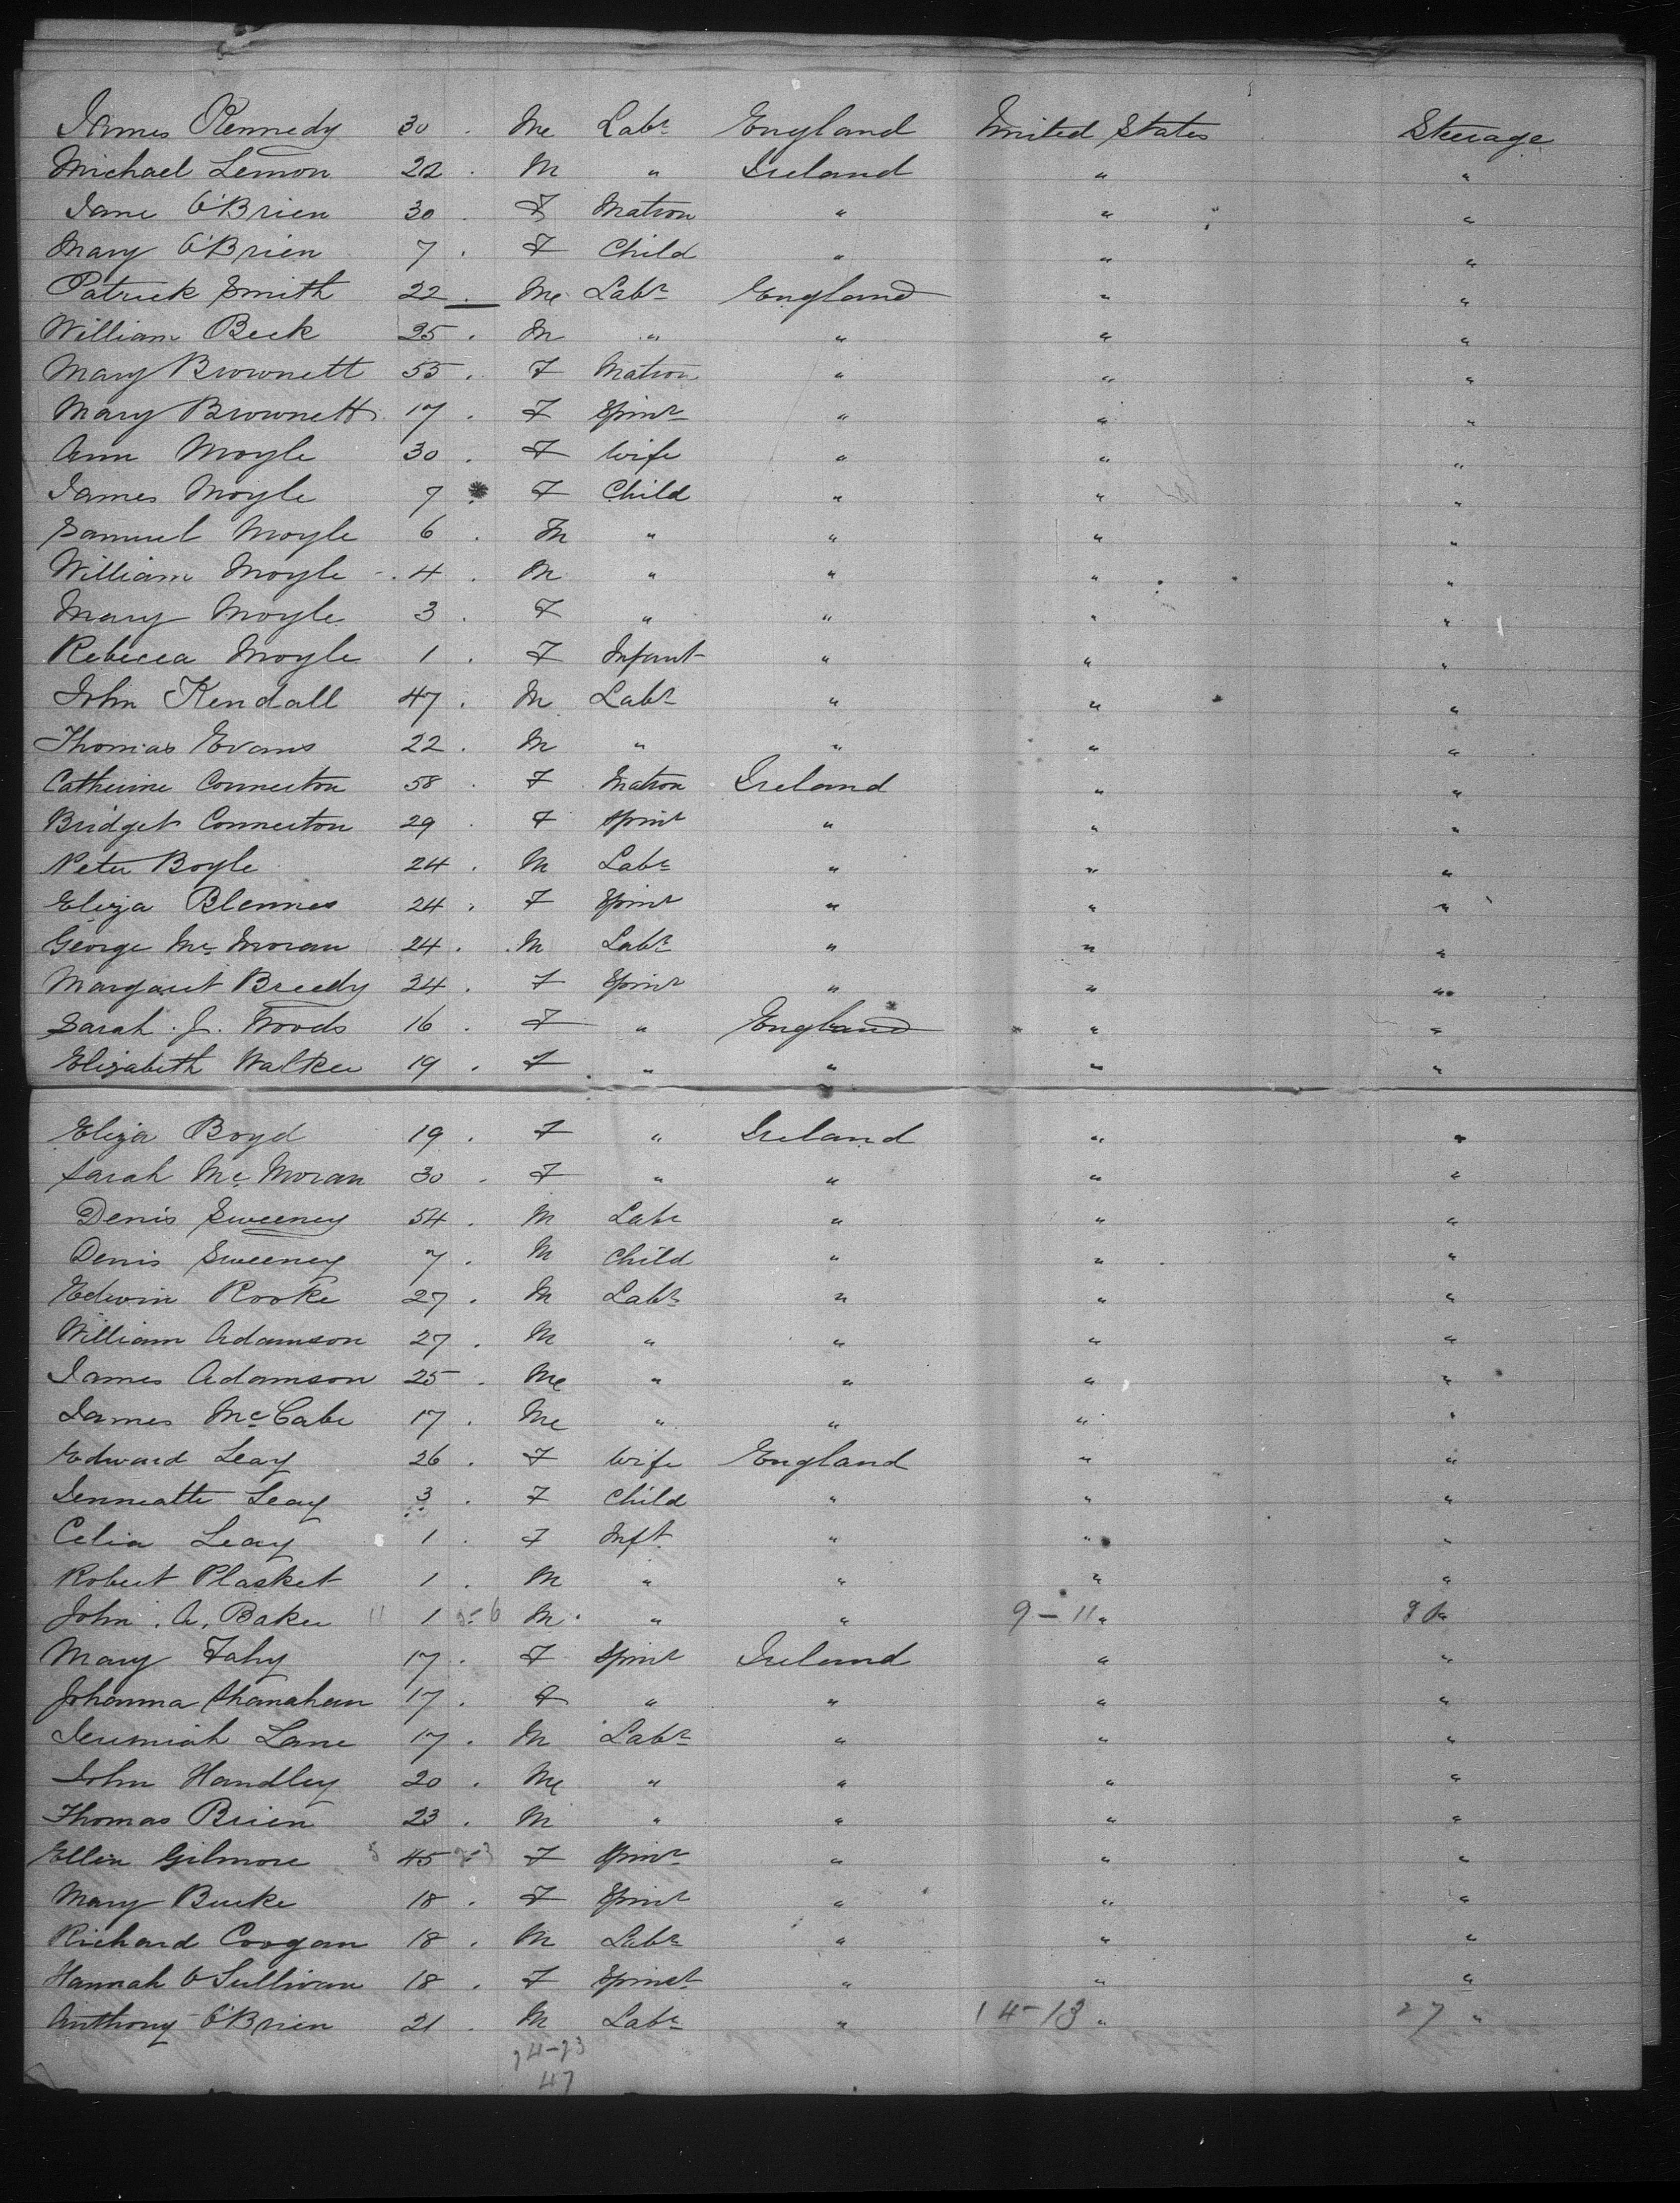 James Kennedy 30 . M Labr England United States Steerage
Michael Lemon 22 . M " Ireland " "
Jane O'Brien 30 . F Matron " " "
Mary O'Brien 7 . F Child " " "
Patrick Smith 22 . M Labr England " "
William Beek 25 . M " " " "
Mary Brownett 55 . F Matron " " "
Mary Brownett 17 . F Spinr " " "
Ann Moyle 30 . F Wife " " "
James Moyle 7 . F Child " " "
Samuel Moyle 6 . M " " " "
William Moyle 4 . M " " " "
Mary Moyle 3 . F " " " "
Rebecca Moyle 1 . F Infant " " "
John Kendall 47 . M Labr " " "
Thomas Evans 22 . M " " " "
Catherine Connerton 58 . F Matron Ireland " "
Bridget Connerton 29 . F Spinr " " "
Peter Boyle 24 . M Labr " " "
Eliza Blennes 24 . F Spinr " " "
George Mc Moran 24 . M Labr " " "
Margaret Breedy 24 . F Spinr " " "
Sarah . J. Woods 16 . F " England " "
Elizabeth Walker 19 . F " " " "
Eliza Boyd 19 . F " Ireland " "
Sarah Mc Moran 30 . F " " " "
Denis Sweeney 54 . M Labr " " "
Denis Sweeney 7 . M Child " " "
Edwin Rooke 27 . M Labr " " "
William Adamson 27 . M " " " "
James Adamson 25 . M " " " "
James McCabe 17 . M " " " "
Edward Leay 26 . F Wife England " "
Jenneatte Leay 3 . F Child " " "
Celia Leay 1 . F Inft " " "
Robert Plasket 1 . M " " " "
John . A. Baker 11 1 5-6 M " " 9-11 " "
Mary Fahy 17 . F Spinr Ireland " "
Johanna Shanahan 17 . F " " " "
Jeremiah Lane 17 . M Labr " " "
John Handley 20 . M " " " "
Thomas Brien 23 . M " " " "
Ellen Gilmore 45 F Spinr " " "
Mary Burke 18 . F Spinr " " "
Richard Coogan 18 . M Labr " " "
Hannah O Sullivan 18 . F Spinst " " "
Anthony O'Brien 21 . M Labr " 14-13 " 27 "
24-23
47